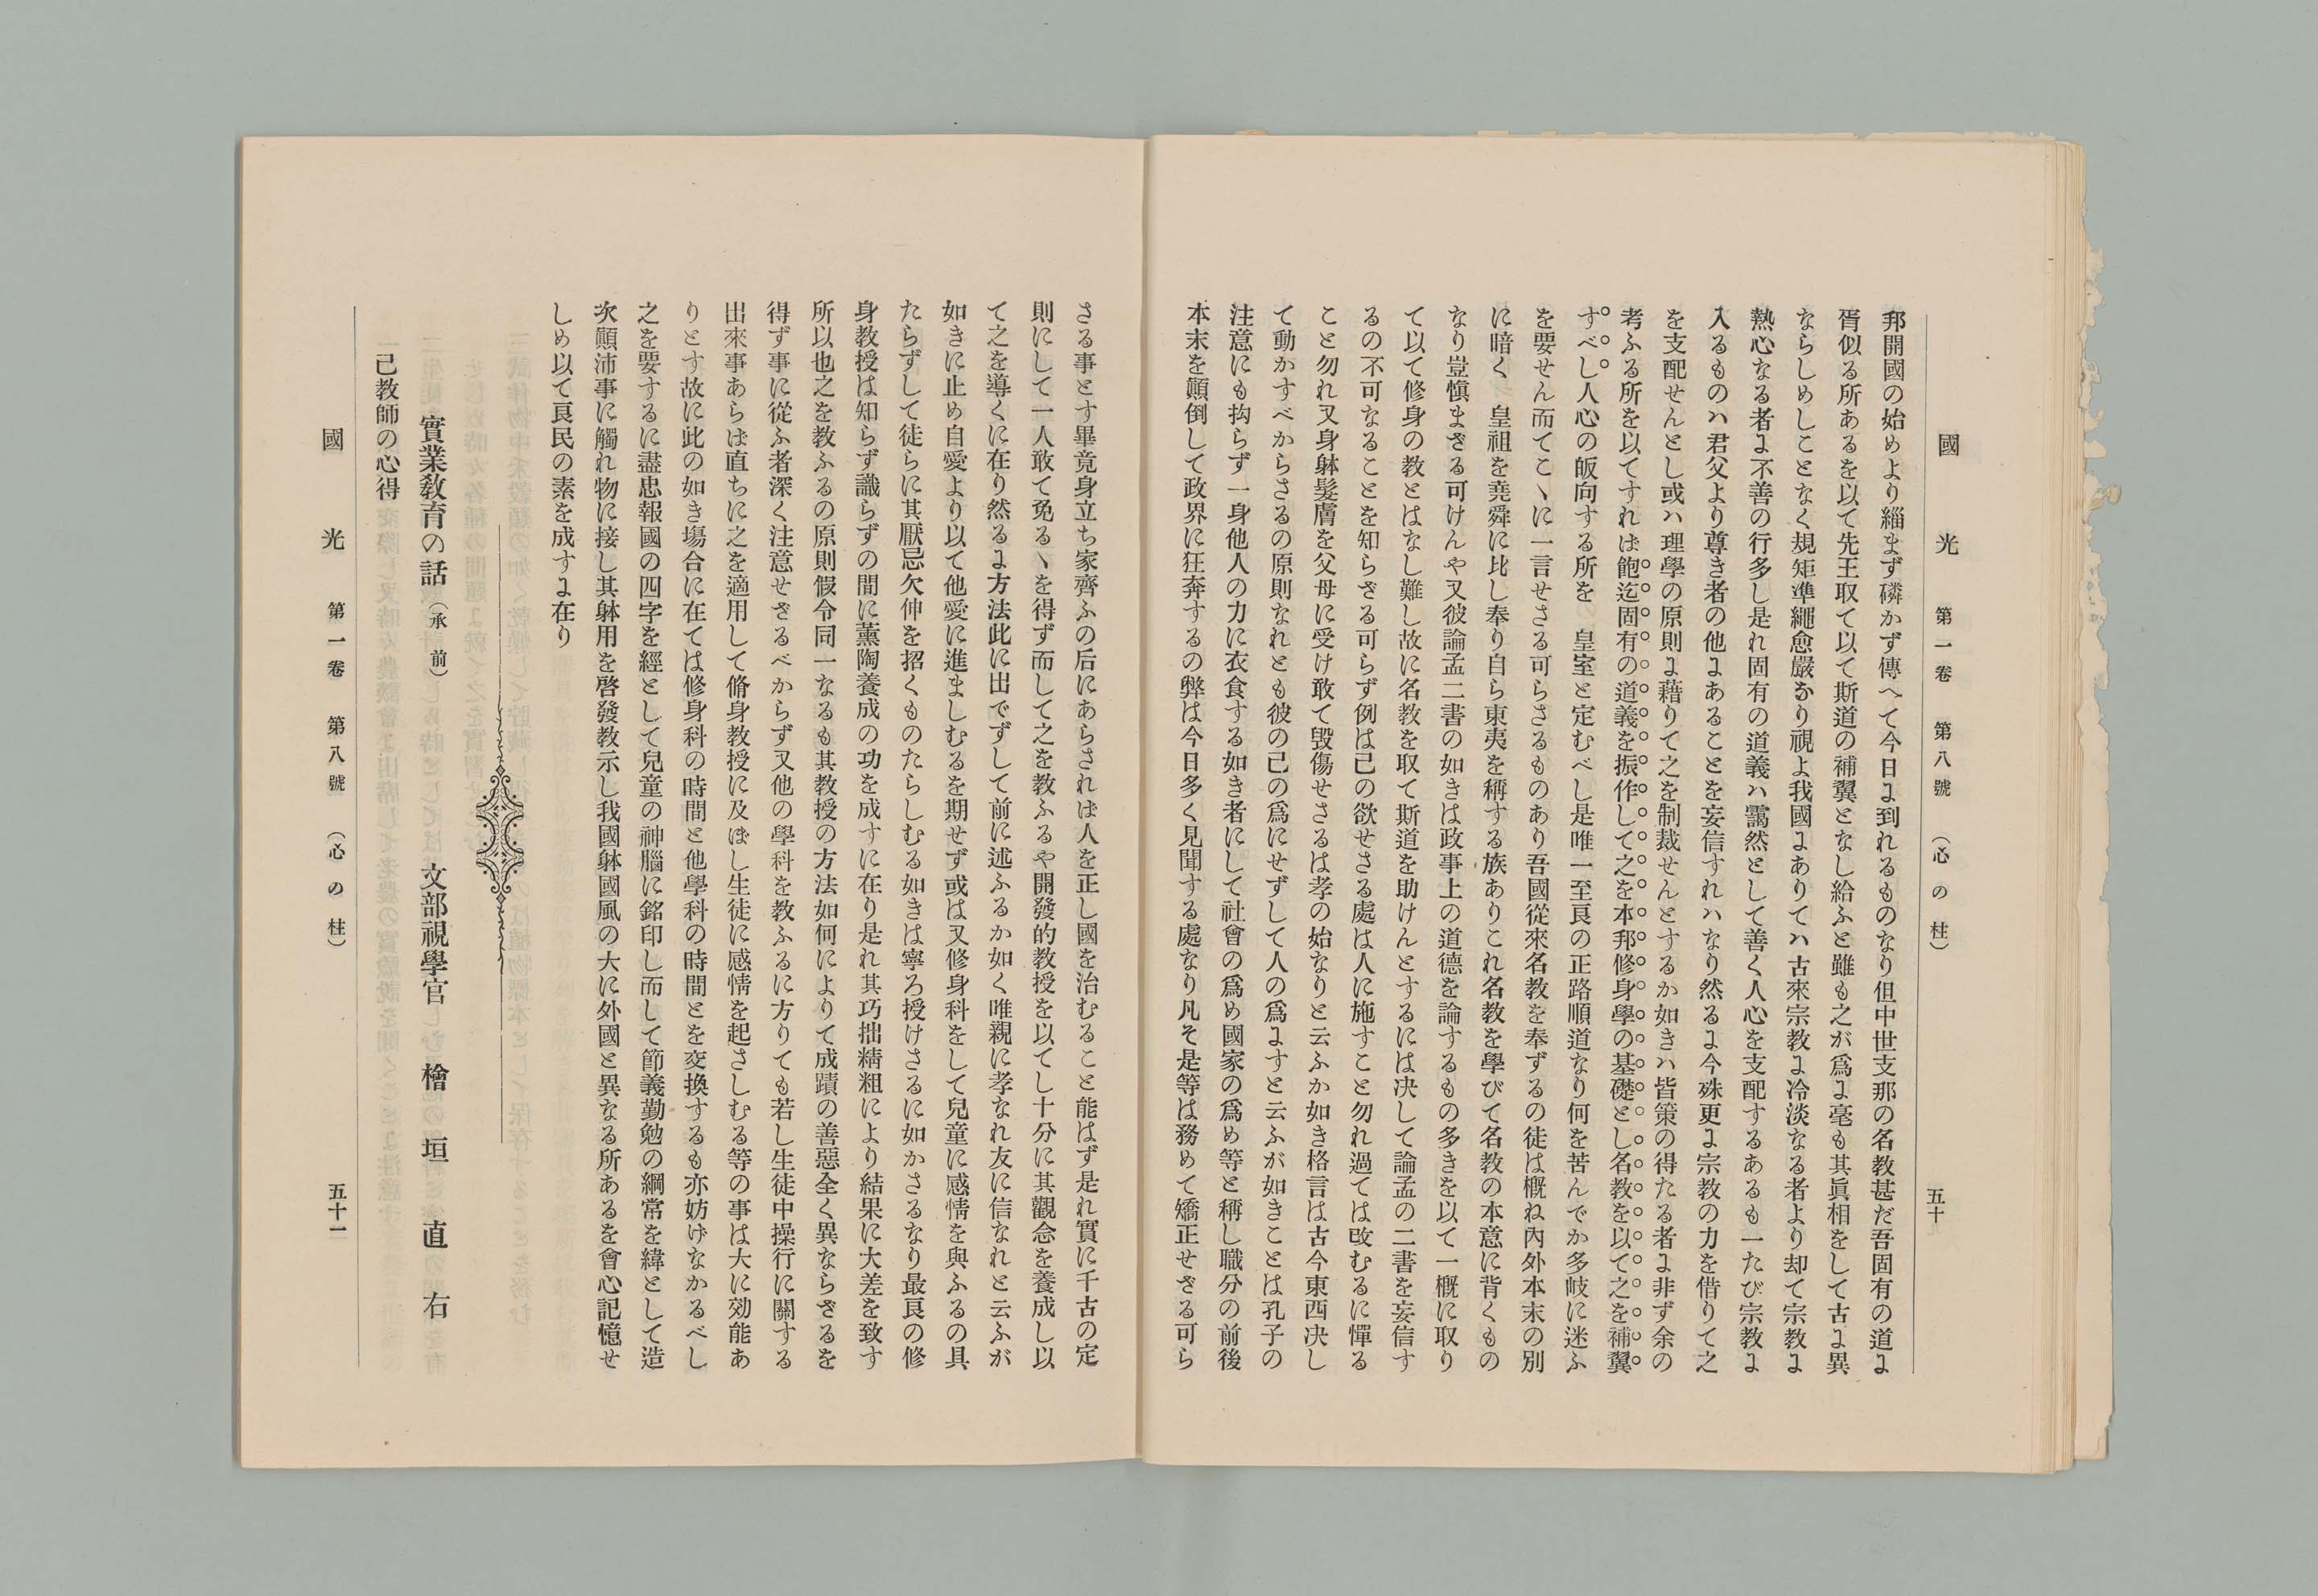 國光 第一卷 第八號 (心の柱) 五十
邦開國の始めより緇まず磷かず傳へて今日に到れるものなり但中世支那の名教甚だ吾固有の道に
胥似る所あるを以て先王取て以て斯道の補翼となし給ふと雖も之が爲に毫も其眞相をして古に異
ならしめしことなく規矩準繩愈嚴なり視よ我國にありてハ古來宗教に冷淡なる者より却て宗教に
熱心なる者に不善の行多し是れ固有の道義ハ靄然として善く人心を支配するあるも一たび宗教に
入るものハ君父より尊き者の他にあることを妄信すれハなり然るに今殊更に宗教の力を借りて之
を支配せんとし或ハ理學の原則に藉りて之を制裁せんとするか如きハ皆策の得たる者に非ず余の
考ふる所を以てすれは飽迄固有の道義を振作して之を本邦修身學の基礎とし名教を以て之を補翼
すべし人心の皈向する所を 皇室と定むべし是唯一至良の正路順道なり何を苦んでか多岐に迷ふ
を要せん而てこヽに一言せさる可らさるものあり吾國從來名教を奉ずるの徒は概ね內外本末の別
に暗く 皇祖を堯舜に比し奉り自ら東夷を稱する族ありこれ名教を學びて名教の本意に背くもの
なり豈愼まざる可けんや又彼論孟二書の如きは政事上の道德を論するもの多きを以て一概に取り
て以て修身の教とはなし難し故に名教を取て斯道を助けんとするには决して論孟の二書を妄信す
るの不可なることを知らざる可らず例は己の欲せさる處は人に施すこと勿れ過ては改むるに憚る
こと勿れ又身躰髮膚を父母に受け敢て毀傷せさるは孝の始なりと云ふか如き格言は古今東西决し
て動かすべからさるの原則なれとも彼の己の爲にせずして人の爲にすと云ふが如きことは孔子の
注意にも拘らず一身他人の力に衣食する如き者にして社會の爲め國家の爲め等と稱し職分の前後
本末を顚倒して政界に狂奔するの弊は今日多く見聞する處なり凡そ是等は務めて矯正せざる可ら
さる事とす畢竟身立ち家齊ふの后にあらされは人を正し國を治むること能はず是れ實に千古の定
則にして一人敢て免るヽを得ず而して之を教ふるや開發的教授を以てし十分に其觀念を養成し以
て之を導くに在り然るに方法此に出でずして前に述ふるか如く唯親に孝なれ友に信なれと云ふが
如きに止め自愛より以て他愛に進ましむるを期せず或は又修身科をして兒童に感情を與ふるの具
たらずして徒らに其厭忌欠伸を招くものたらしむる如きは寧ろ授けさるに如かさるなり最良の修
身教授は知らず識らずの間に薰陶養成の功を成すに在り是れ其巧拙精粗により結果に大差を致す
所以也之を教ふるの原則假令同一なるも其教授の方法如何によりて成蹟の善惡全く異ならざるを
得ず事に從ふ者深く注意せざるべからず又他の學科を教ふるに方りても若し生徒中操行に關する
出來事あらは直ちに之を適用して脩身教授に及ぼし生徒に感情を起さしむる等の事は大に効能あ
りとす故に此の如き塲合に在ては修身科の時間と他學科の時間とを変換するも亦妨げなかるべし
之を要するに盡忠報國の四字を經として兒童の神腦に銘印し而して節義勤勉の綱常を緯として造
次顚沛事に觸れ物に接し其躰用を啓發教示し我國躰國風の大に外國と異なる所あるを會心記憶せ
しめ以て良民の素を成すに在り
實業敎育の話 (承前) 文部視學官 檜垣直右
一己教師の心得
國光 第一卷 第八號 (心の柱) 五十一